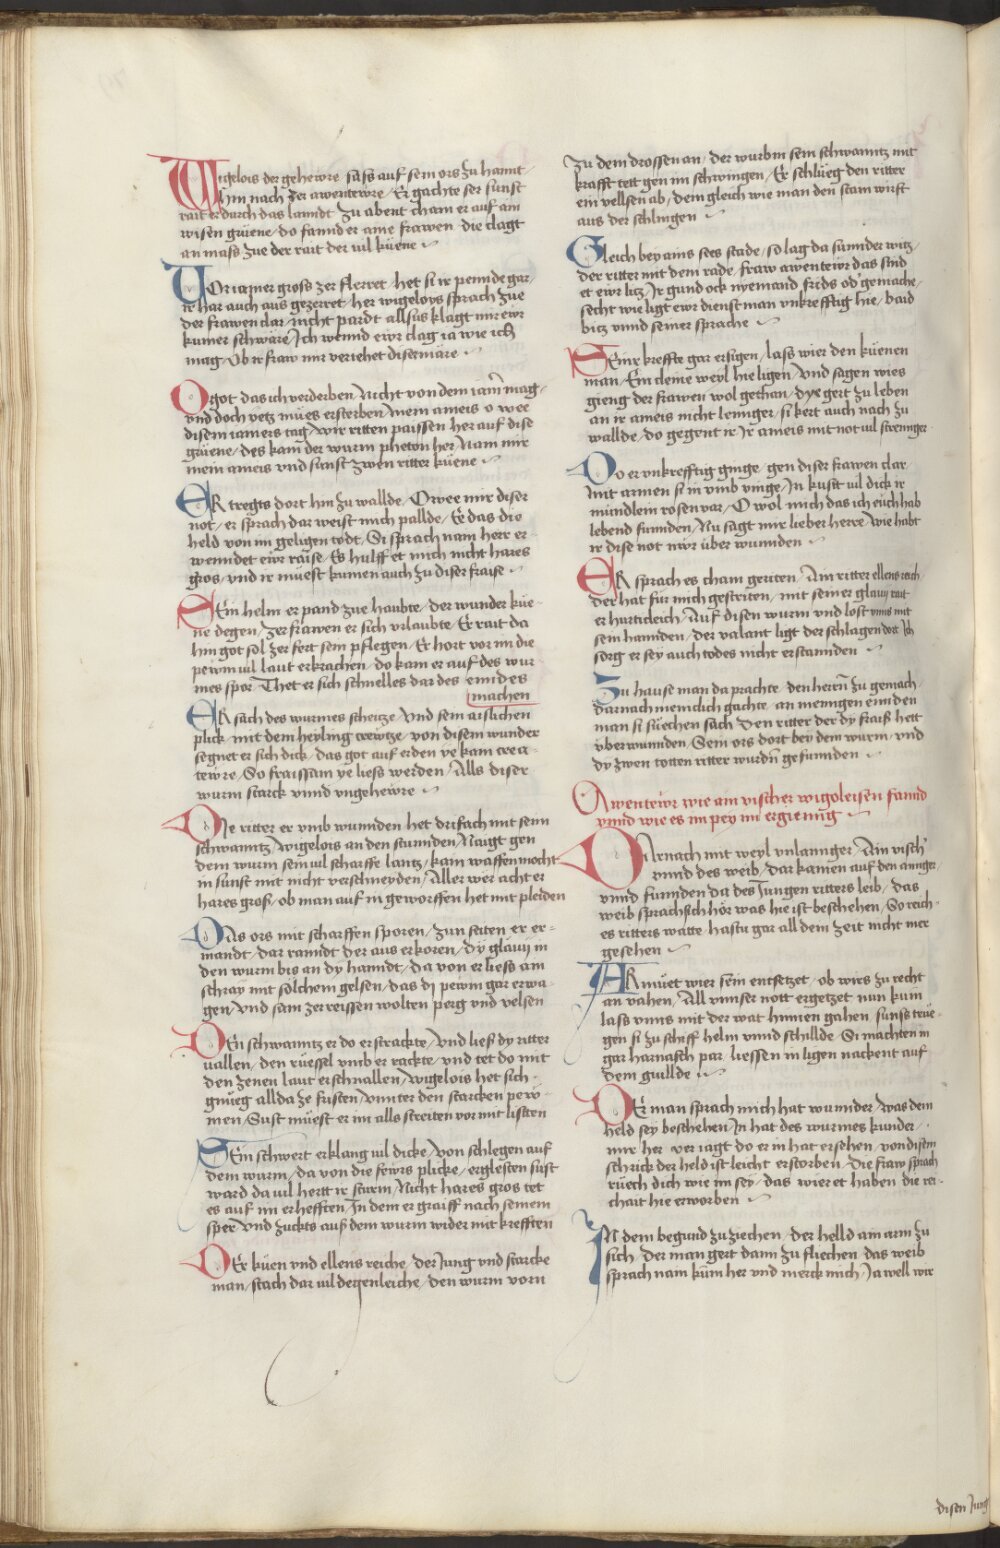 Wigelois der gehewre sass auf sein ors zu hannt
hin nach der awentewre / Er gachte ser sunst
rait er durch das lanndt zu abent cham er auf ain
wisen grüene / do fannd er aine frawen die clagt
an mass zue der rait der uil küene
Vor iamer gross zer flerret / het si ir pennde gar /
ir har auch aus gezerret / her wigeloys sprach zue
der frawen clar / nicht pardt allsus klagt mir ewr
kumer schwäre / Ich wennd ewr clag ia wie ich
mag / Ob ir fraw mir veriehet diser märe
O got das ich verderben / Nicht von dem iam̄ mag /
vnd doch yetz mues ersterben / mein ameis o wee
disem iamers tag / wir ritten paissen her auf dise
grüene / des kam der wurm pheton her / Nam mir
mein ameis vnd sunst zwen ritter küene
ER tregts dort hin zu wallde / O wee mir diser
not / er sprach dar weist mich pallde / Ee das die
held von im geligen todt / Si sprach nain herr er=
wenndet ewr raise / Es hulff et mich nicht hares
gros / vnd ir müest kumen auch zu diser fraise
SEin helm er pand zue haubte / der wunder küe=
ne degen / zer frawen er sich vrlaubte / Er rait da
hin got sol zer fert sein pflegen / Er hort vor im die
pewm uil laut erkrachen / do kam er auf des wur
mes spor / Thet er sich schnelles dar des enndes
machen
ER sach des wurmes scheitze / Vnd sein aislichen
plick / mit dem heyling crewtze / von disem wunder
segnet er sich dick / das got auf erden ye kam crea=
tewre / So fraissam ye liess werden / Alls diser
wurm starck vnnd vngehewre
Die ritter er vmb wunnden het drifach mit seim
schwanntz / wigelois an den stunnden / Naigt gen
dem wurm sein uil scharffe lantz / kain waffen mocht
in sunst mit nicht verschneyden / Aller wer acht er
hares groß / ob man auf in geworffen het mit pleiden
DAs ors mit scharffen sporen / zun seiten er er=
mandt / dar ranndt der aus erkoren / dy glauy in
den wurm bis an dy hanndt / da von er liess ain
schray mit solchem gelsen / das di pewm gar erwa=
gen / Vnd sam zerreissen wolten perg vnd velsen
DEn schwanntz er do erstrackte / Vnd ließ dy ritter
uallen / den rüessel vmb er rackte / vnd tet do mit
den zenen laut erschnallen / wigelois het sich
gnüeg allda ze fristen / vnnter den starcken pew=
men / Sust müest er im alls streiten vor mit listen
SEin schwert erklang uil dicke / Von schlegen auf
dem wurm / da von die fewrs plicke / erglesten sust
ward da uil hertt ir sturm / Nicht hares gros tet
es auf im erhefften / In dem er graiff nach seinem
sper / Vnd zuckts auß dem wurm wider mit krefften
DEr küen vnd ellens reiche / der Jung vnd starcke
man / stach dar uil degenleiche / den wurm vorn
zu dem drossen an / der wurbm sein schwanntz mit
krafft tett gen im schwingen / Er schlueg den ritter
ein vellsen ab / dem gleich wie man den stain wirft
aus der schlingen
Gleich bey ains sees stade / so lag da sunnder witz /
der ritter mit dem rade / fraw awentewr das sind
et ewr litz / Ir gund ock nyemand frids od' gemache /
secht wie ligt ewr dienstman vnkrefftig hie / baid
bitz vnnd seiner sprache
SEinr kreffte gar ersigen / lass wier den küenen
man / Ein cleine weyl hie ligen / Vnd sagen wies
gieng der frawen wol gethan / dye gert zu leben
an ir ameis nicht lenniger / si kert auch nach zu
wallde / do gegent ir Ir ameis mit not uil strenniger
Do er vnkrefftig ginge / gen diser frawen clar /
Mit armen si in vmb vinge / In kusst uil dick ir
mündlein rosenvar / O wol mich das ich euch hab
lebend funnden / Nu sagt mir lieber herre / wie habt
ir dise not nwr über wunnden
ER sprach es cham geriten / Ain ritter ellens reich /
der hat für mich gestriten / mit seiner glauy rait
er hurticleich / Auf disen wurm vnd löst vnns mit
sein hannden / der valant ligt der schlagen dort Ich
sorg er sey auch todes nicht erstannden
Zu hause man da prachte / den herrn̄ zu gemach /
darnach menclich gachte / an menigen ennden
man si suechen sach / Den ritter der dy fraiß hett
überwunnden / Sein ors dort bey dem wurm / vnd
dy zwen totten ritter wurdn̄ gefunnden
Awentewr wie ain vischer wigoleisen fannd
vnnd wie es im pey im ergienng
DArnach mit weyl vnlannger / Ain visch'
vnnd des weib / dar kamen auf den annger /
vnnd funnden da des Jungen ritters leib / das
weib sprach sich hör was hie ist beschehen / So reich
es ritters watte / hastu gar all dein zeit nicht mer
gesehen
ER müet wier sein entsetzet / ob wirs zu recht
an vahen / All vnnser nott ergetzet nun kum
lass vnns mit der wat hinnen gahen / sunss true=
gen si zu schiff helm vnnd schillde / Si machten in
gar harnasch par / liessen in ligen nackent auf
dem guillde
DEr man sprach mich hat wunnder / was dem
held sey beschehen / In hat des wurmes kunder /
nur her ver iagt do er in hat ersehen / von disem
schrick der held ist leicht erstorben / Die fraw sprach
rüech dich wie im sey / das wier et haben die rei=
chait hie erworben
IN dem begund zu ziechen / der helld ain arm zu
sich / der man gert dann zu fliechen / das weib
sprach nain küm her vnd merck mich / Ja well wir
disen Jung